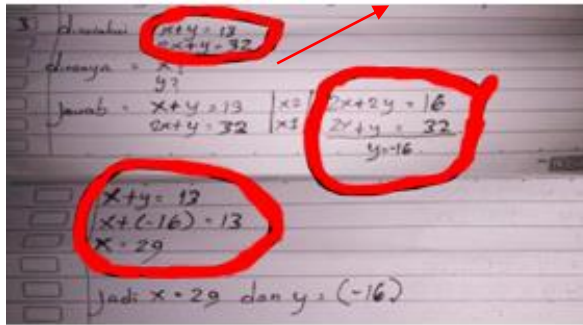 3 diketahui x+y = 13
2x+y = 32
ditanya = x?
y?
Jawab = x+y = 13 |x2| 2x+2y = 16
2x+y = 32 |x1| 2x+y = 32
y=-16
x+y = 13
x+(-16) = 13
x = 29
Jadi x = 29 dan y = (-16)